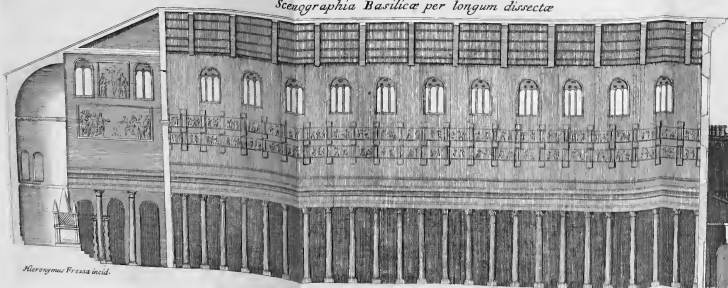 Scenographia Basilicæ per longum dissectæ
Hieronymus Frezza incid.